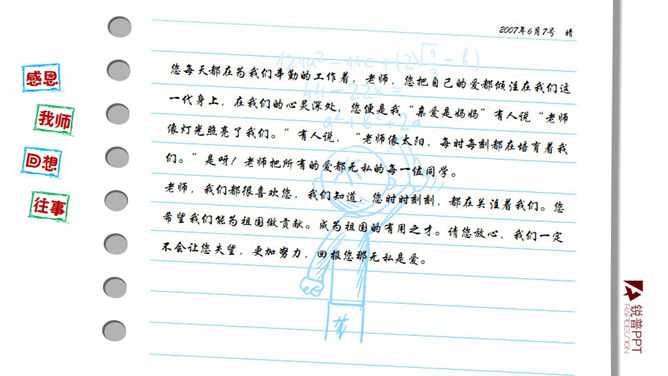 2007年6月7号 晴
您每天都在为我们辛勤的工作着，老师，您把自己的爱都倾注在我们这
一代身上，在我们的心灵深处，您便是我“亲爱是妈妈”有人说“老师
像灯光照亮了我们。”有人说，“老师像太阳，每时每刻都在培育着我
们。”是呀！老师把所有的爱都无私的每一位同学。
老师，我们都很喜欢您，我们知道，您时时刻刻，都在关注着我们。您
希望我们能为祖国做贡献。成为祖国的有用之才。请您放心，我们一定
不会让您失望，更加努力，回报您那无私是爱。
感恩
我师
回想
往事
锐普PPT